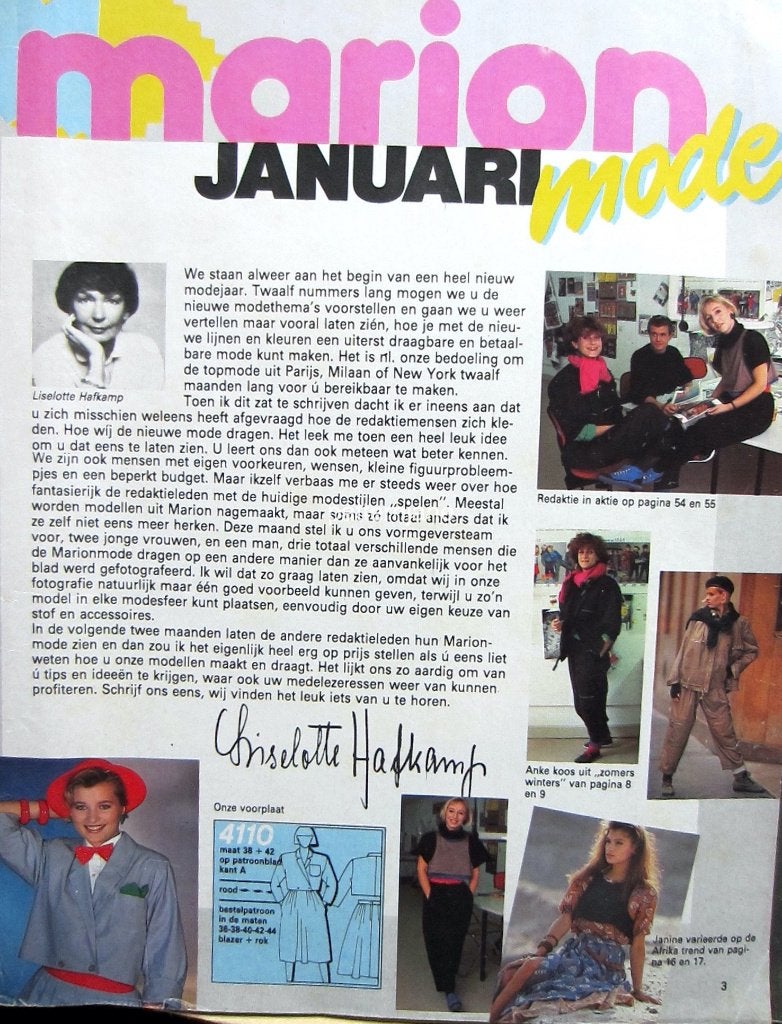 marion
JANUARI
mode
We staan alweer aan het begin van een heel nieuw
modejaar. Twaalf nummers lang mogen we u de
nieuwe modethema's voorstellen en gaan we u weer
vertellen maar vooral laten zién, hoe je met de nieu-
we lijnen en kleuren een uiterst draagbare en betaal-
bare mode kunt maken. Het is nl. onze bedoeling om
de topmode uit Parijs, Milaan of New York twaalf
maanden lang voor ú bereikbaar te maken.
Liselotte Hafkamp
Toen ik dit zat te schrijven dacht ik er ineens aan dat
u zich misschien weleens heeft afgevraagd hoe de redaktiemensen zich kle-
den. Hoe wíj de nieuwe mode dragen. Het leek me toen een heel leuk idee
om u dat eens te laten zien. U leert ons dan ook meteen wat beter kennen.
We zijn ook mensen met eigen voorkeuren, wensen, kleine figuurprobleem-
pjes en een beperkt budget. Maar ikzelf verbaas me er steeds weer over hoe
fantasierijk de redaktieleden met de huidige modestijlen „spelen". Meestal
worden modellen uit Marion nagemaakt, maar soms zó totaal anders dat ik
ze zelf niet eens meer herken. Deze maand stel ik u ons vormgeversteam
voor, twee jonge vrouwen, en een man, drie totaal verschillende mensen die
de Marionmode dragen op een andere manier dan ze aanvankelijk voor het
blad werd gefotografeerd. Ik wil dat zo graag laten zien, omdat wij in onze
fotografie natuurlijk maar één goed voorbeeld kunnen geven, terwijl u zo'n
model in elke modesfeer kunt plaatsen, eenvoudig door uw eigen keuze van
stof en accessoires.
In de volgende twee maanden laten de andere redaktieleden hun Marion-
mode zien en dan zou ik het eigenlijk heel erg op prijs stellen als ú eens liet
weten hoe u onze modellen maakt en draagt. Het lijkt ons zo aardig om van
ú tips en ideeën te krijgen, waar ook uw medelezeressen weer van kunnen
profiteren. Schrijf ons eens, wij vinden het leuk iets van u te horen.
Liselotte Hafkamp
Redaktie in aktie op pagina 54 en 55
Anke koos uit „zomers
winters" van pagina 8
en 9
Onze voorplaat
4110
maat 38 + 42
op patroonblad
kant A
rood
bestelpatroon
in de maten
36-38-40-42-44
blazer + rok
Janine varieerde op de
Afrika trend van pagi-
na 16 en 17.
3